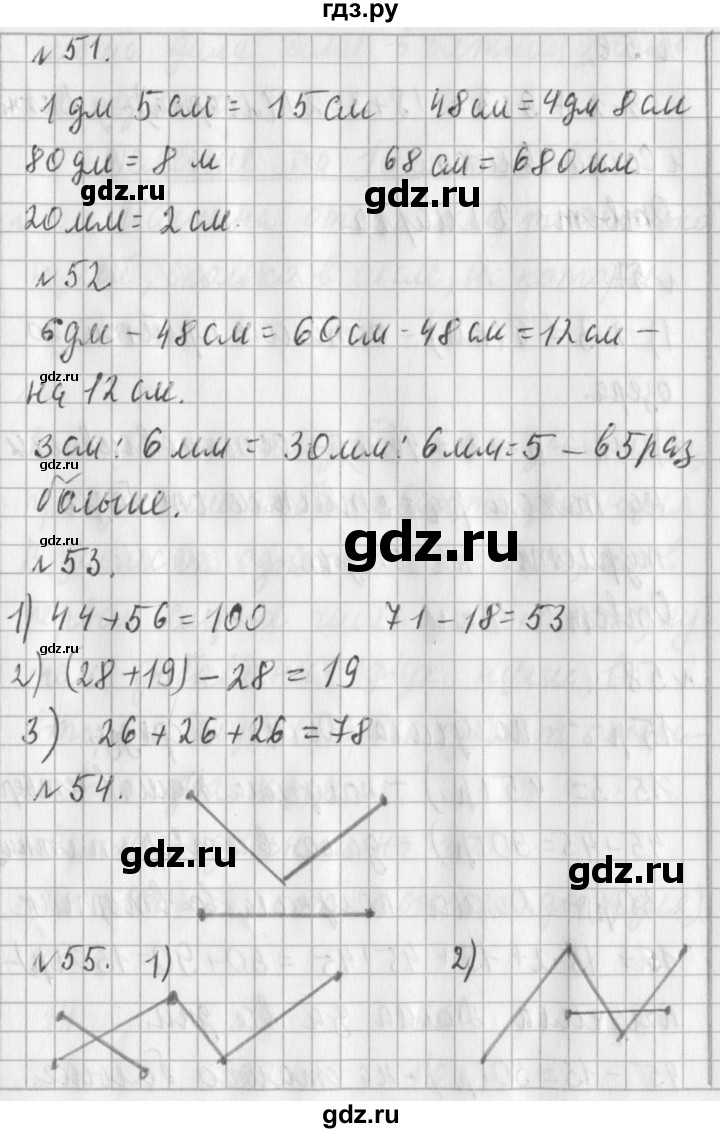 гдз.ру
№ 51.
1 дм 5 см = 15 см 48 см = 4 дм 8 см
80 дм = 8 м 68 см = 680 мм
gdz.ru gdz.ru
20 мм = 2 см.
№ 52
6 дм – 48 см = 60 см - 48 см = 12 см –
gdz.ru
на 12 см.
3 см : 6 мм = 30 мм : 6 мм = 5 – в 5 раз
gdz.ru
больше.
gdz.ru gdz.ru
№ 53.
1) 44 + 56 = 100 71 - 18 = 53
gdz.ru
2) (28 + 19) – 28 = 19
3) 26 + 26 + 26 = 78
№ 54.
gdz.ru gdz.ru
№ 55. 1) 2)
gdz.ru
gdz.ru